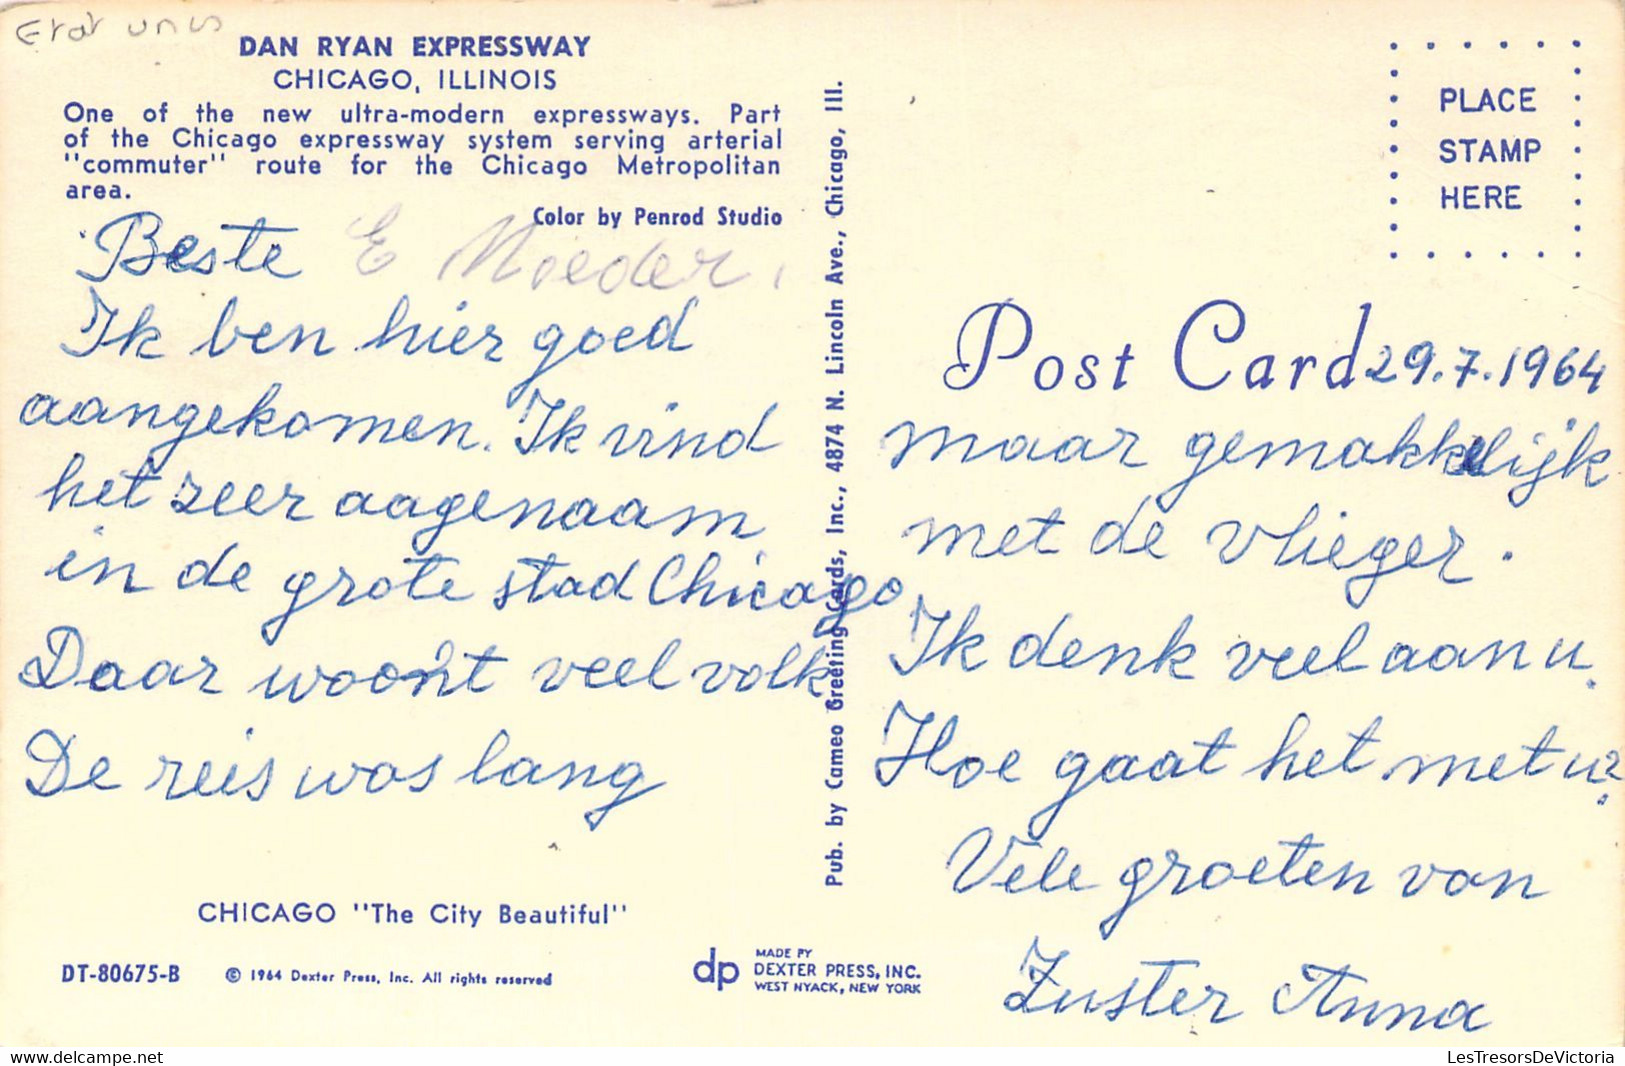 Etat unis
DAN RYAN EXPRESSWAY
CHICAGO, ILLINOIS
One of the new ultra-modern expressways. Part
of the Chicago expressway system serving arterial
"commuter" route for the Chicago Metropolitan
area.
Color by Penrod Studio
Beste E Moeder,
Ik ben hier goed
aangekomen. Ik vind
het zeer aagenaam
in de grote stad Chicago
Daar woont veel volk
De reis was lang
CHICAGO "The City Beautiful"
DT-80675-B © 1964 Dexter Press, Inc. All rights reserved
Pub. by Cameo Greeting Cards, Inc., 4874 N. Lincoln Ave., Chicago, Ill.
dp
MADE BY
DEXTER PRESS, INC.
WEST NYACK, NEW YORK
PLACE
STAMP
HERE
Post Card 29.7.1964
maar gemakkelijk
met de vlieger.
Ik denk veel aan u.
Hoe gaat het met u?
Vele groeten van
Zuster Anna
LesTresorsDeVictoria